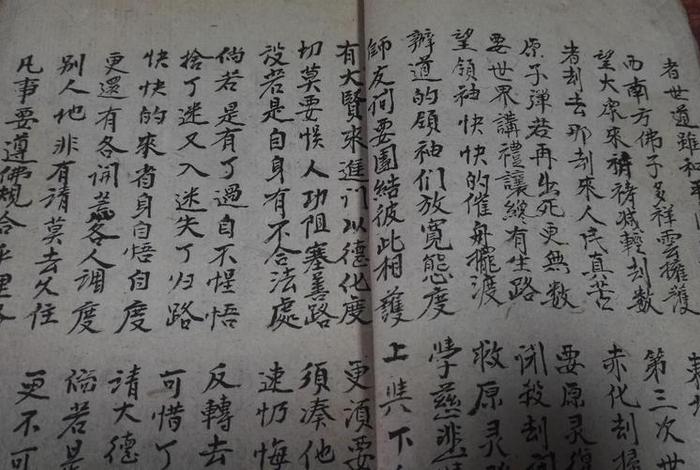 者世道雖和
西南方佛子多祥雲擁護
望大眾來禱禱減輕刦數 第三次世
者刦去那刦來人民真苦 赤化刦掃
原子彈若再出死更無數 要原灵復
要世界講禮讓總有生路 閉殺刦
望領袖快快的催舟擺渡 救原灵
辦道的領袖們放寬態度 學慈悲
師友间要團結彼此相護 上與下
有大賢來進门以德化度 更須要
切莫要悮人功阻塞善路 須湊他
設若是自身有不合法處 速扔悔
倘若是有了過自不惺悟 反轉去
捨了迷又入迷失了归路 可惜了
快快的來省身自悟自度 請大德
更還有各開荒各人調度 倘若是
別人地非有請莫去久住 更不可
凡事要遵佛規合乎理